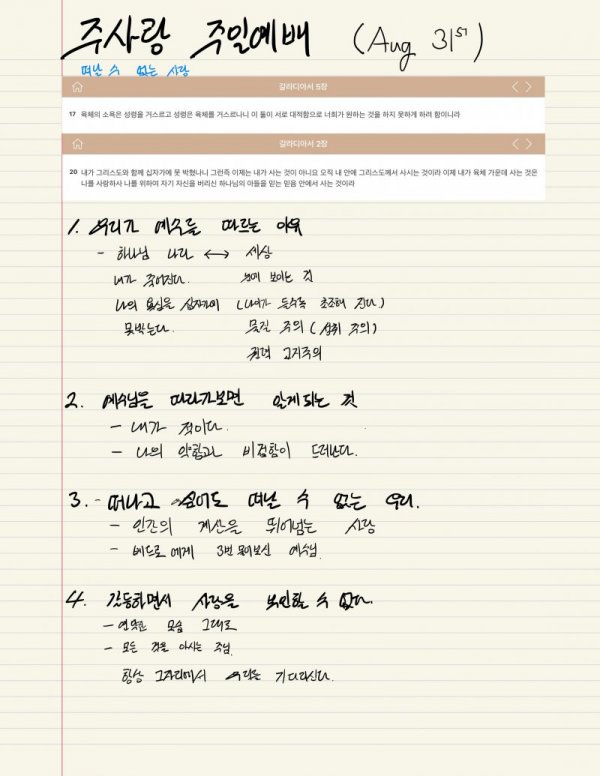 주사랑 주일예배 (Aug 31st)
떠날 수 없는 사랑
갈라디아서 5장
17 육체의 소욕은 성령을 거스르고 성령은 육체를 거스르나니 이 둘이 서로 대적함으로 너희가 원하는 것을 하지 못하게 하려 함이니라
갈라디아서 2장
20 내가 그리스도와 함께 십자가에 못 박혔나니 그런즉 이제는 내가 사는 것이 아니요 오직 내 안에 그리스도께서 사시는 것이라 이제 내가 육체 가운데 사는 것은
나를 사랑하사 나를 위하여 자기 자신을 버리신 하나님의 아들을 믿는 믿음 안에서 사는 것이라
1. 우리가 예수를 따르는 이유
- 하나님 나라 ↔ 세상
내가 죽어진다. 눈에 보이는 것
나의 욕심을 십자가에 (나이가 들수록 초조해 진다)
못박는다. 물질 주의 (성취 주의)
권력
2. 예수님을 따라가보면 알게되는 것
- 내가 적이다.
- 나의 약함과 비겁함이 드러난다.
3. - 떠나고 싶어도 떠날 수 없는 우리.
- 인간의 계산을 뛰어넘는 사랑
- 베드로에게 3번 물어보신 예수님.
4. 갈등하면서 사랑을 부인할 수 없다.
- 연약한 모습 그대로
- 모든 것을 아시는 주님.
항상 그자리에서 우리를 기다리신다.